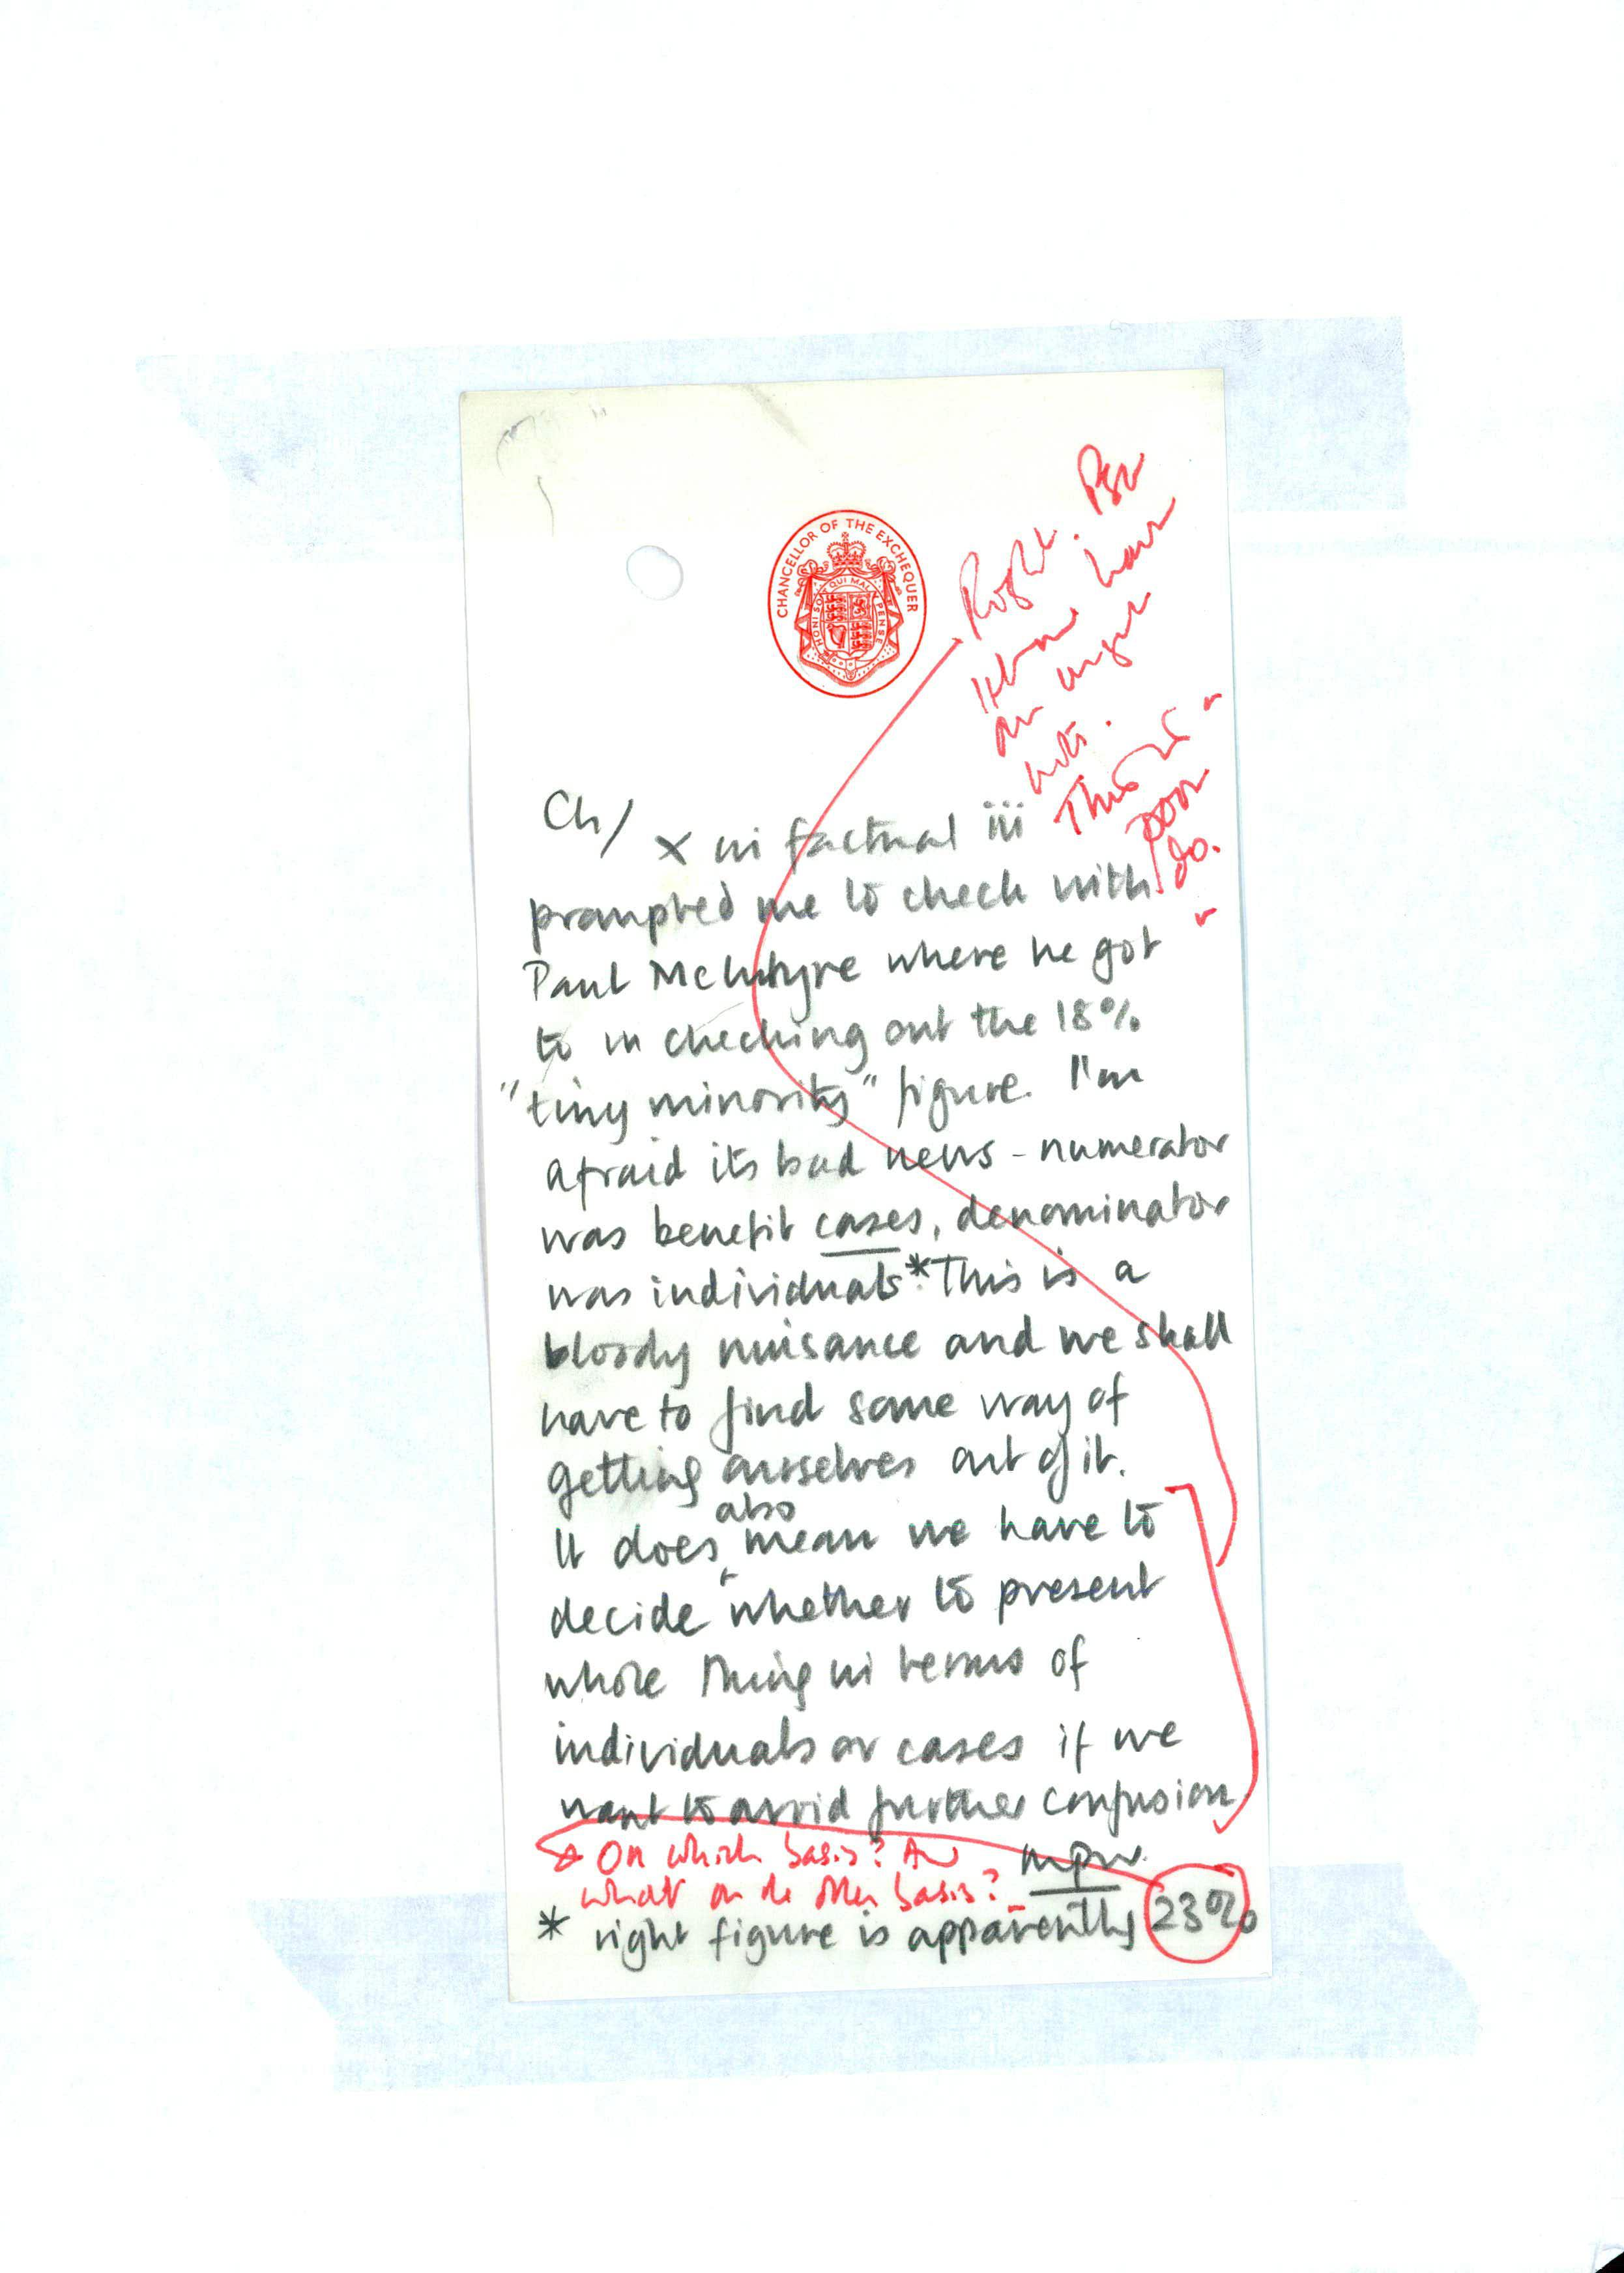 CHANCELLOR OF THE EXCHEQUER
HONI SOIT QUI MAL Y PENSE
Right.
have
an urgent
note.
This is a
poor
do.
Ch/
X in factual iii
prompted me to check with
Paul McIntyre where he got
to in checking out the 18%
"tiny minority" figure. I'm
afraid its bad news - numerator
was benefit cases, denominator
was individuals.* This is a
bloody nuisance and we shall
have to find some way of
getting ourselves out of it.
It does also mean we have to
decide whether to present
whole thing in terms of
individuals or cases if we
want to avoid further confusion
mpw.
On which basis? And
what on the other basis?
* right figure is apparently 23%